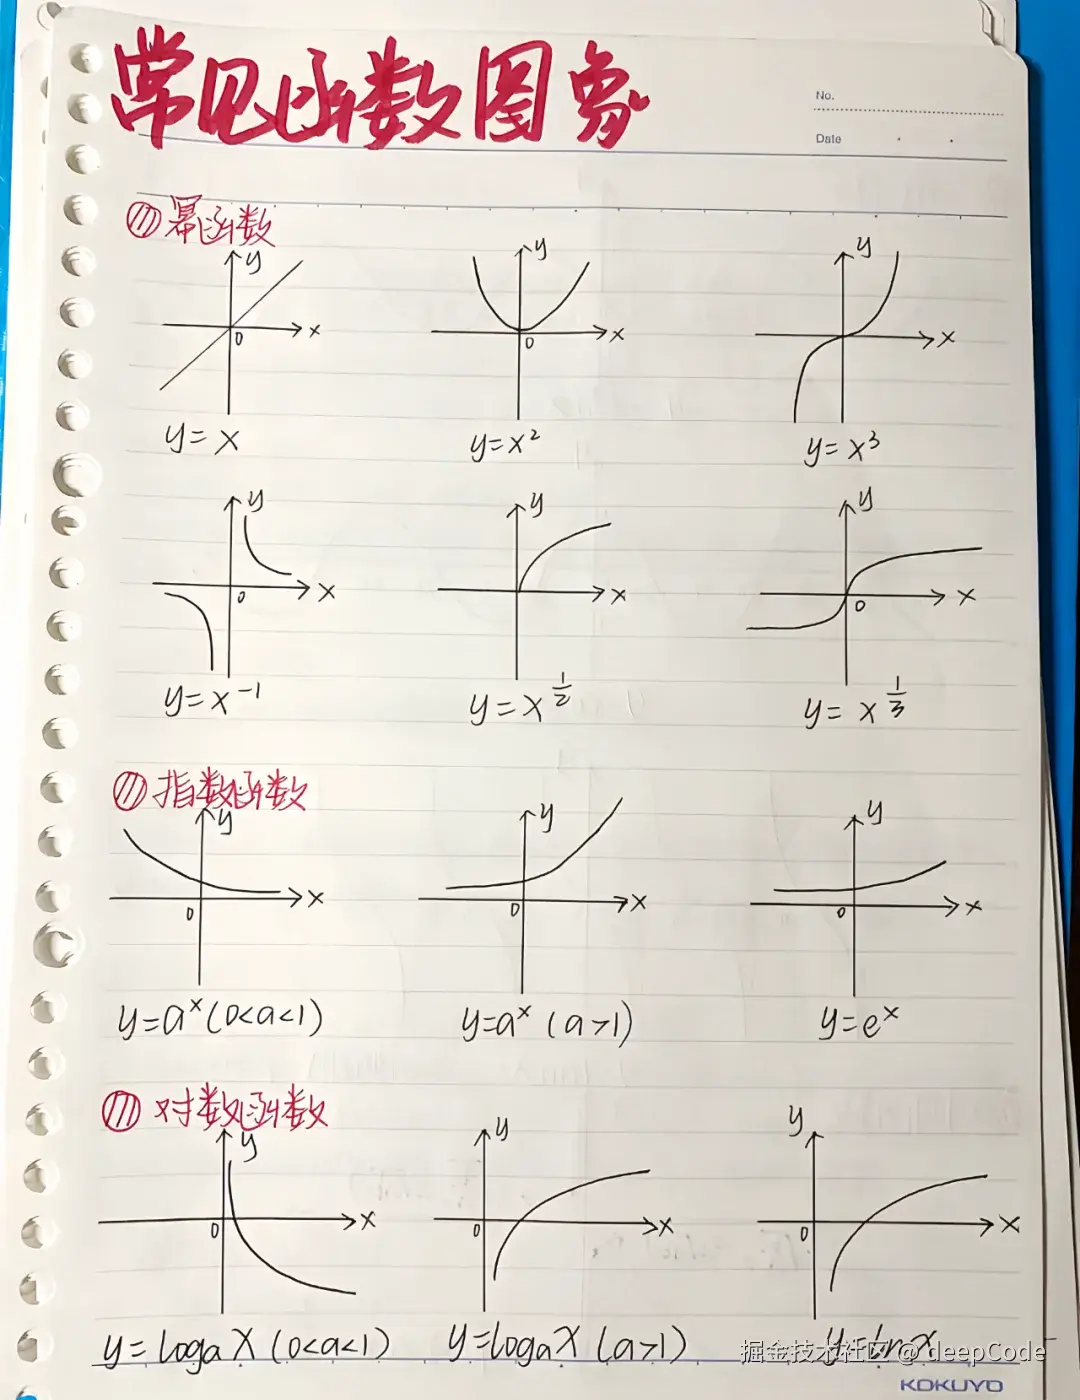 常见函数图象
No.
Date
幂函数
y x 0
y x 0
y x
y=x
y=x²
y=x³
y x 0
y x
y x 0
y=x⁻¹
y=x^{1/2}
y=x^{1/3}
指数函数
y x 0
y x 0
y x 0
y=aˣ(0<a<1)
y=aˣ (a>1)
y=eˣ
对数函数
y x 0
y x 0
y x 0
y=logₐX (0<a<1)
y=logₐX (a>1)
y=lnx
掘金技术社区 @ deepCode
KOKUYO